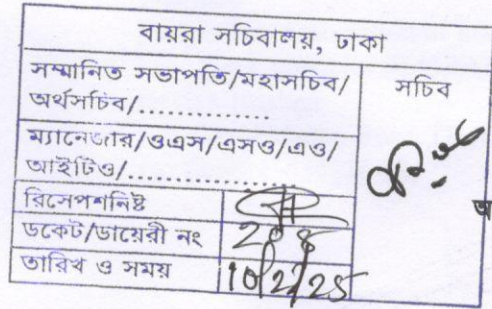 বায়রা সচিবালয়, ঢাকা
সম্মানিত সভাপতি/মহাসচিব/
অর্থসচিব/.............
সচিব
ম্যানেজার/ওএস/এসও/এও/
আইটিও/................
রিসেপশনিষ্ট
ডকেট/ডায়েরী নং
তারিখ ও সময়